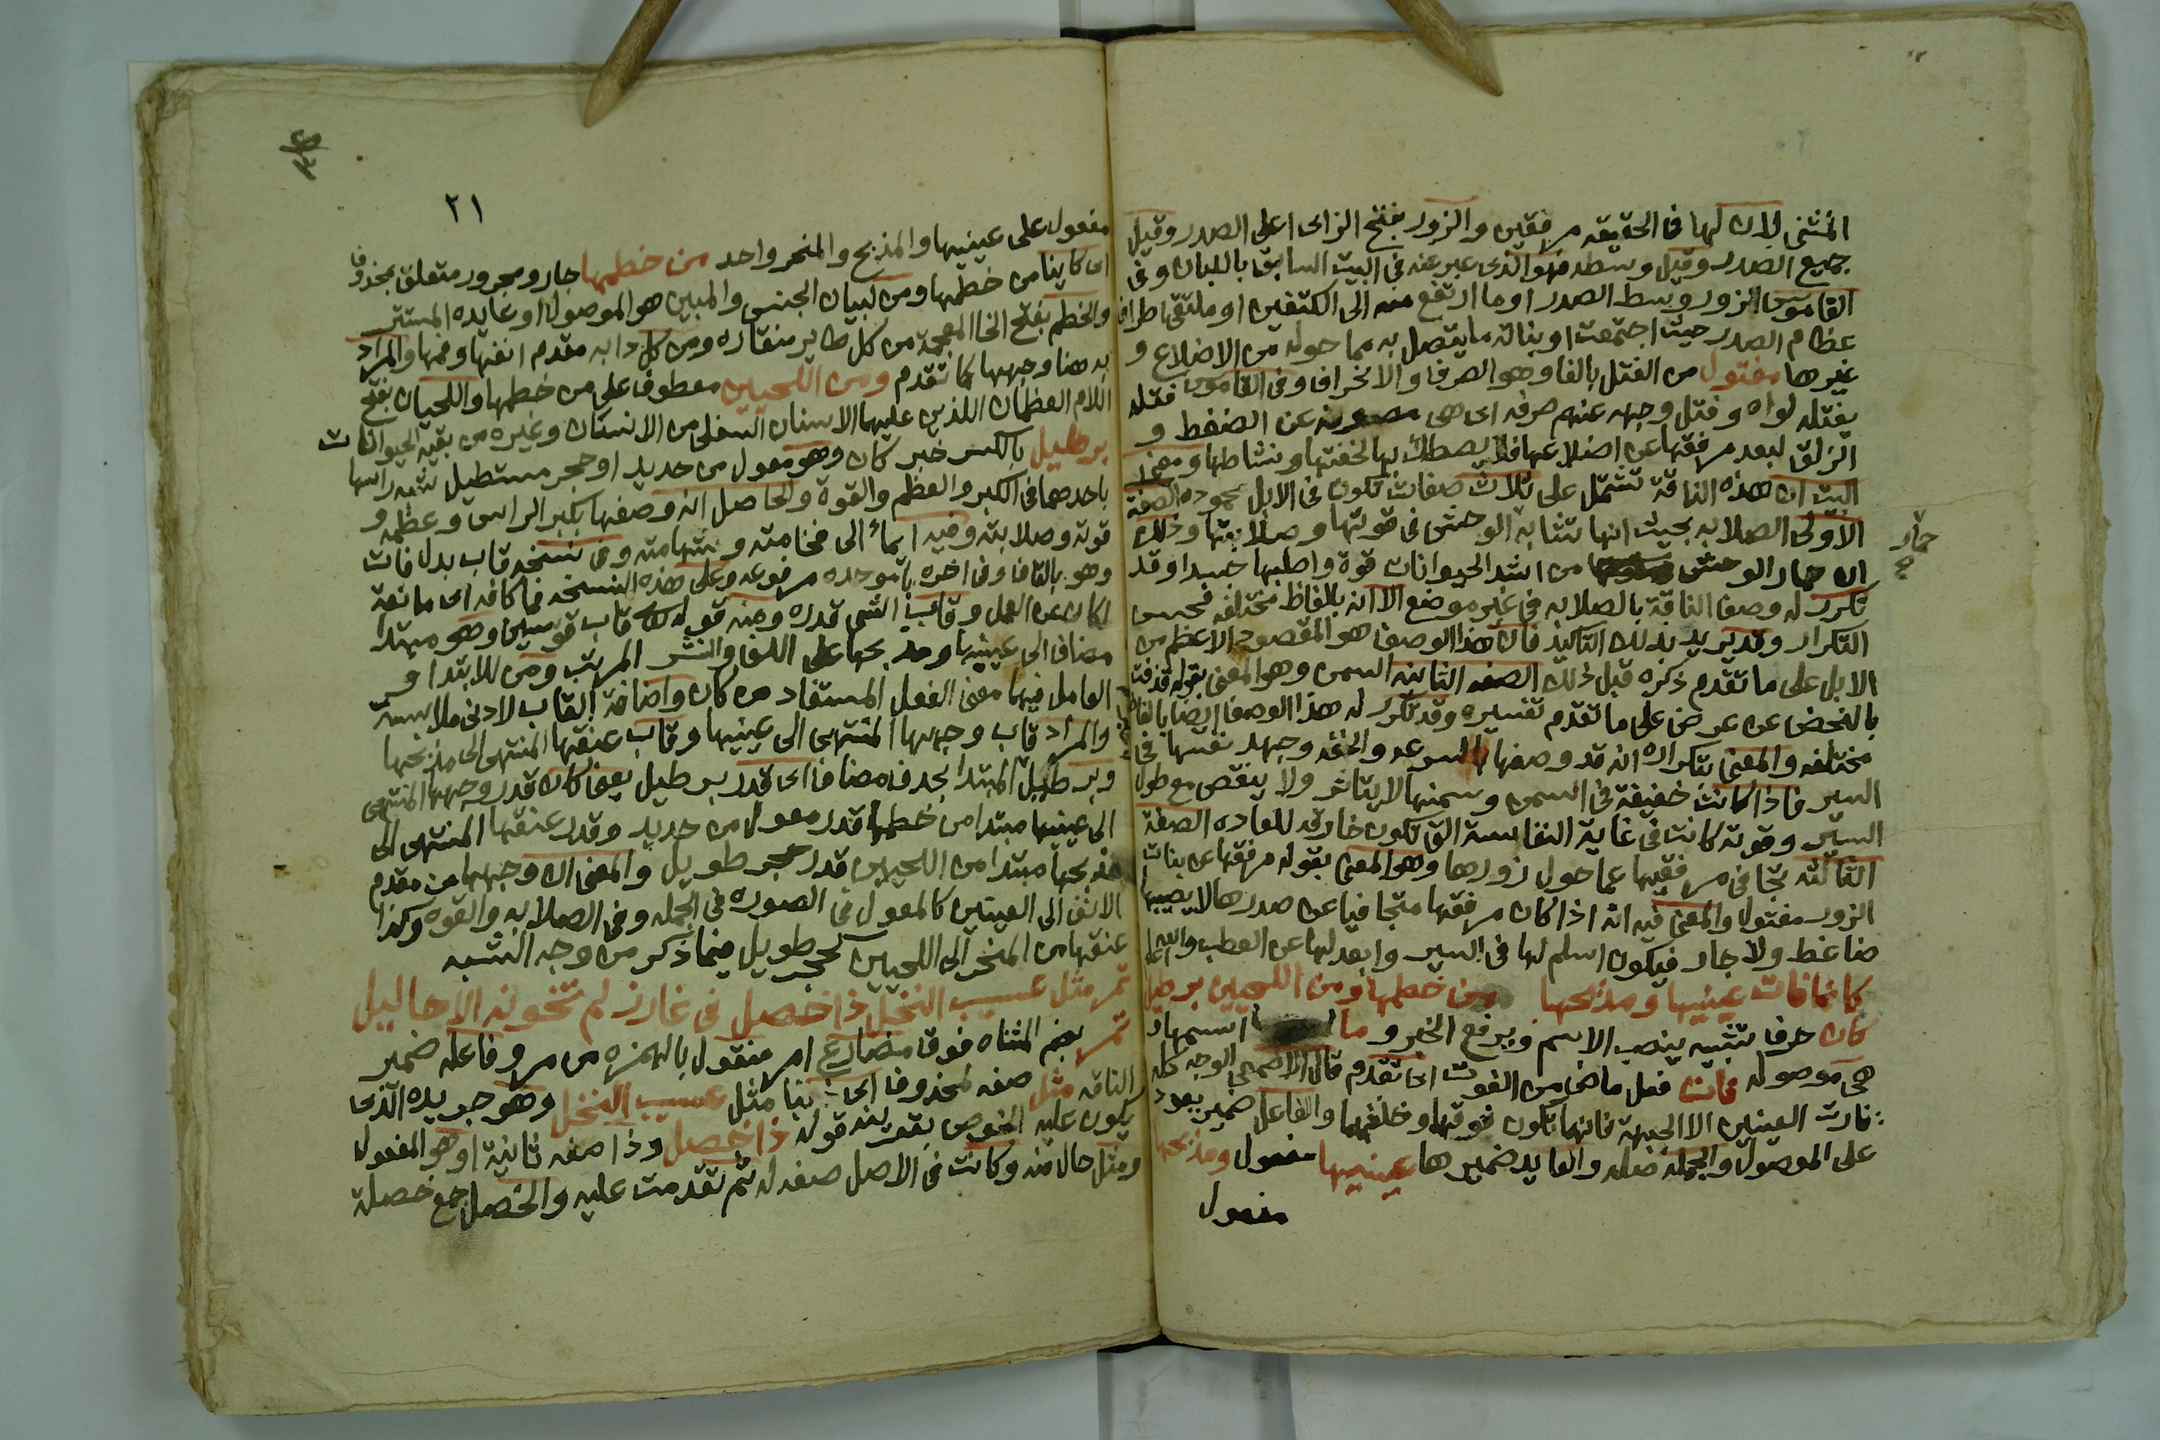 المثنى لان لها فى الحقيقه مرفقين والزور بفتح الزاى اعلى الصدر وقيل
جميع الصدر وقيل وسطه فهو الذى عبر عنه فى البيت السابق باللبان وفى
القاموس الزور وسط الصدر او ما ارتفع منه الى الكتفين او ملتقى اطراف
عظام الصدر حيث اجتمعت او بناته ما يتصل به مما حوله من الاضلاع و
غيرها مفتول من الفتل بالفا وهو الصرف والانحراف وفى القاموس فتله
يفتله لواه وفتل وجهه عنهم صرفه اى هى مصونه عن الضغط و
الزلق لبعد مرفقها عن اضلاعها فلا يصطك بها لخفتها ونشاطها ومعنى
البيت ان هذه الناقة تشتمل على ثلاث صفات تكون فى الابل محموده الصفة
الاولى الصلابه بحيث انها تشابة الوحش فى قوتها وصلابتها وذلك
ان حمار الوحش من اشد الحيوانات قوة واصلبها جسدا وقد
حمار
تكرر له وصف الناقة بالصلابه فى غير موضع الا انه بالفاظ مختلفه فحسن
التكرار وقد يريد بذلك التاكيد فان هذا الوصف هو المقصود الاعظم من
الابل على ما تقدم ذكره قبل ذلك الصفه الثانيه السمن وهو المعنى بقوله قذفت
بالنحض عن عرض على ما تقدم تفسيره وقد تكرر له هذا الوصف ايضا بالفاظ
مختلفه والمعنى بتكراره انه قد وصفها بالسرعه والخفه وجهد نفسها فى
السير فاذا كانت خفيفة فى السمن وسمنها لا يتاثر ولا ينقص مع طول
السير وقوته كانت فى غاية النفاسة التى تكون خارقه للعاده الصفة
الثالثه تجافى مرفقيها عما حول زورها وهو المعنى بقوله مرفقها عن بنات
الزور مفتول والمعنى فيه انه اذا كان مرفقها متجافيا عن صدرها لا يصيبها
ضاغط ولا جار فيكون اسلم لها فى السير وابعد لها عن العطب والله اعلم
كانما فات عينيها ومذبحها من خطمها ومن اللحيين برطيل
كان حرف تشبيه ينصب الاسم ويرفع الخبر وما اسمها و
هى موصوله فات فعل ماض من الفوت اى تقدم قال الاصمعى الوجه كله
فات العينين الا الجبهة فانها تكون فوقها وخلفهما والفاعل ضمير يعود
على الموصول والجمله صله والعايد ضميرها عينيها مفعول ومذبحها
مفعول
٢١
مفعول على عينيها والمذبح والمنحر واحد من خطمها جار ومجرور متعلق بمحذوف
اى كاينا من خطمها ومن لبيان الجنس والمبين هو الموصول او عايده المستتر
والخطم بفتح الخا المعجمة من كل طاير منقاره ومن كل دابه مقدم انفها وفمها والمراد
به هنا وجهها كما تقدم ومن اللحيين معطوف على من خطمها واللحيان بفتح
اللام العظمان اللذين عليهما الاسنان السفلى من الانسان وغيره من بقية الحيوانات
برطيل بالكسر خبر كان وهو معول من حديد او حجر مستطيل شبه راسها
باحدهما فى الكبر والعظم والقوة والحاصل انه وصفها بكبر الراس وعظمه و
قوته وصلابته وفيه ايماء الى فخامته وشهامته وفى نسخه قاب بدل فات
وهو بالقاف وفى اخره با موحده مرفوعه وعلى هذه النسخه فما كافه اى مانعة
لكان عن العمل وقاب الشى قدره ومنه قوله قاب قوسين وهو مبتدا
مضاف الى عينيها ومذبحها على اللف والنشر المرتب ومن للابتدا و
العامل فيها معنى الفعل المستفاد من كان واضافة القاب لادنى ملابسة
والمراد قاب وجهها المنتهى الى عينيها وقاب عنقها المنتهى الى مذبحها
وبرطيل المبتدا بحذف مضاف اى قدر برطيل يعنى كان قدر وجهها المنتهى
الى عينيها مبتدا من خطمها قدر معول من حديد وقدر عنقها المنتهى الى
مذبحها مبتدا من اللحيين قدر حجر طويل والمعنى ان وجهها من مقدم
الانف الى العينين كالمعول فى الصوره فى الجمله وفى الصلابه والقوه وكذا
عنقها من المنحر الى اللحيين كحجر طويل فيما ذكر من وجه الشبه
تمر مثل عسيب النخل ذا خصل فى غارز لم تخونه الاحاليل
تمر بضم المثناه فوق مضارع امر منقول بالهمزه من مر وفاعله ضمير
الناقه مثل صفه لمحذوف اى ذنبا مثل عسيب النخل وهو جريده الذى
يكون عليه الخوص بقرينه قوله ذا خصل وذا صفه ثانية او هو المفعول
ومثل حال منه وكانت فى الاصل صفه له ثم تقدمت عليه والخصل جمع خصلة